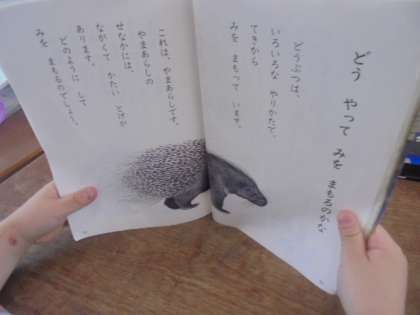 どう やって みを まもるのかな
どうぶつは、
いろいろな やりかたで、
てきから
みを まもって います。
これは、やまあらしです。
やまあらしの
せなかには、
ながくて かたい とげが
あります。
どのように して
みを まもるのでしょう。